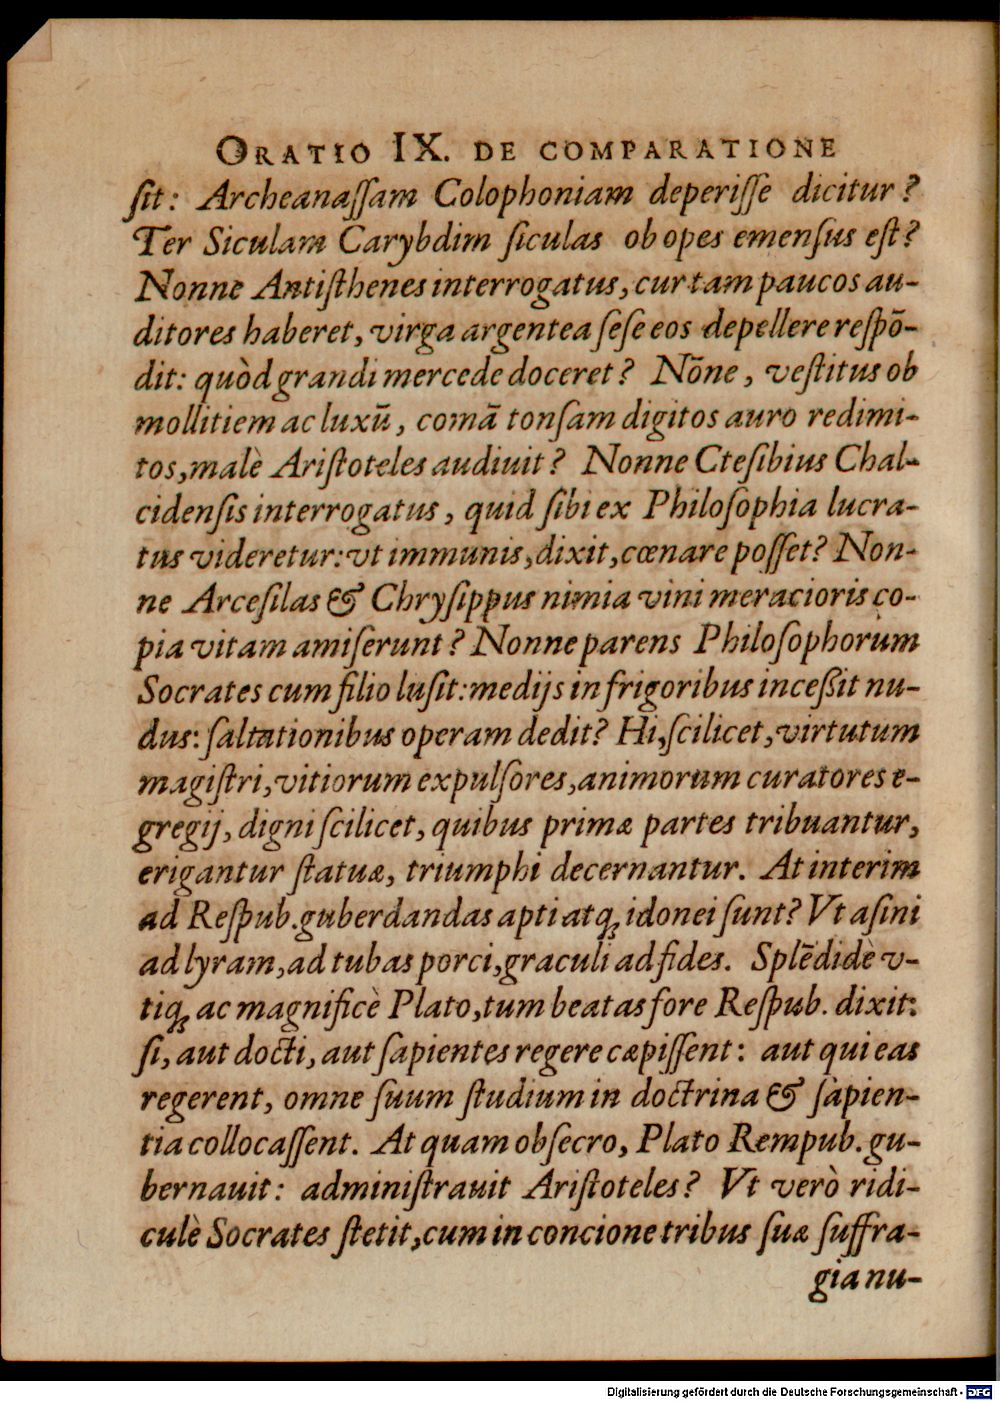 ORATIO IX. DE COMPARATIONE
ſit: Archeanaſſam Colophoniam deperiſſe dicitur?
Ter Siculam Carybdim ſiculas ob opes emenſus eſt?
Nonne Antiſthenes interrogatus, cur tam paucos au-
ditores haberet, virga argentea ſeſe eos depellere reſpõ-
dit: quòd grandi mercede doceret? Nõne, veſtitus ob
mollitiem ac luxũ, comã tonſam digitos auro redimi-
tos, malè Ariſtoteles audiuit? Nonne Cteſibius Chal-
cidenſis interrogatus, quid ſibi ex Philoſophia lucra-
tus videretur: vt immunis, dixit, cœnare poſſet? Non-
ne Arceſilas & Chryſippus nimia vini meracioris co-
pia vitam amiſerunt? Nonne parens Philoſophorum
Socrates cum filio luſit: medijs in frigoribus inceßit nu-
dus: ſaltationibus operam dedit? Hi, ſcilicet, virtutum
magiſtri, vitiorum expulſores, animorum curatores e-
gregij, digni ſcilicet, quibus primæ partes tribuantur,
erigantur ſtatuæ, triumphi decernantur. At interim
ad Reſpub. guberdandas apti atq; idonei ſunt? Vt aſini
ad lyram, ad tubas porci, graculi ad fides. Splẽdidè v-
tiq; ac magnificè Plato, tum beatas fore Reſpub. dixit:
ſi, aut docti, aut ſapientes regere cæpiſſent: aut qui eas
regerent, omne ſuum ſtudium in doctrina & ſapien-
tia collocaſſent. At quam obſecro, Plato Rempub. gu-
bernauit: adminiſtrauit Ariſtoteles? Vt verò ridi-
culè Socrates ſtetit, cum in concione tribus ſuæ ſuffra-
gia nu-
Digitalisierung gefördert durch die Deutsche Forschungsgemeinschaft - DFG